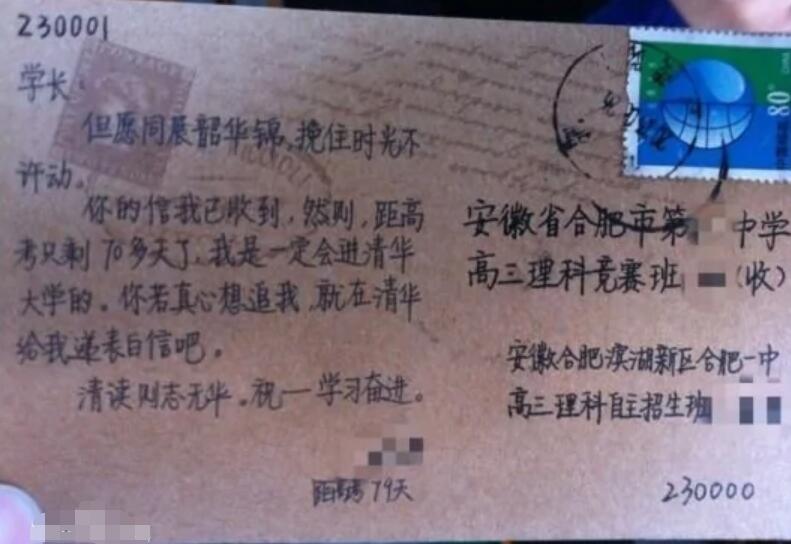 230001
学长：
但愿同展韶华锦，挽住时光不
许动。
你的信我已收到，然则，距高
考只剩70多天了，我是一定会进清华
大学的。你若真心想追我，就在清华
给我递表白信吧。
清读则志无华。祝一学习奋进。
距高考79天
80
安徽省合肥市第 中学
高三理科竞赛班 (收)
安徽合肥滨湖新区合肥一中
高三理科自主招生班
230000